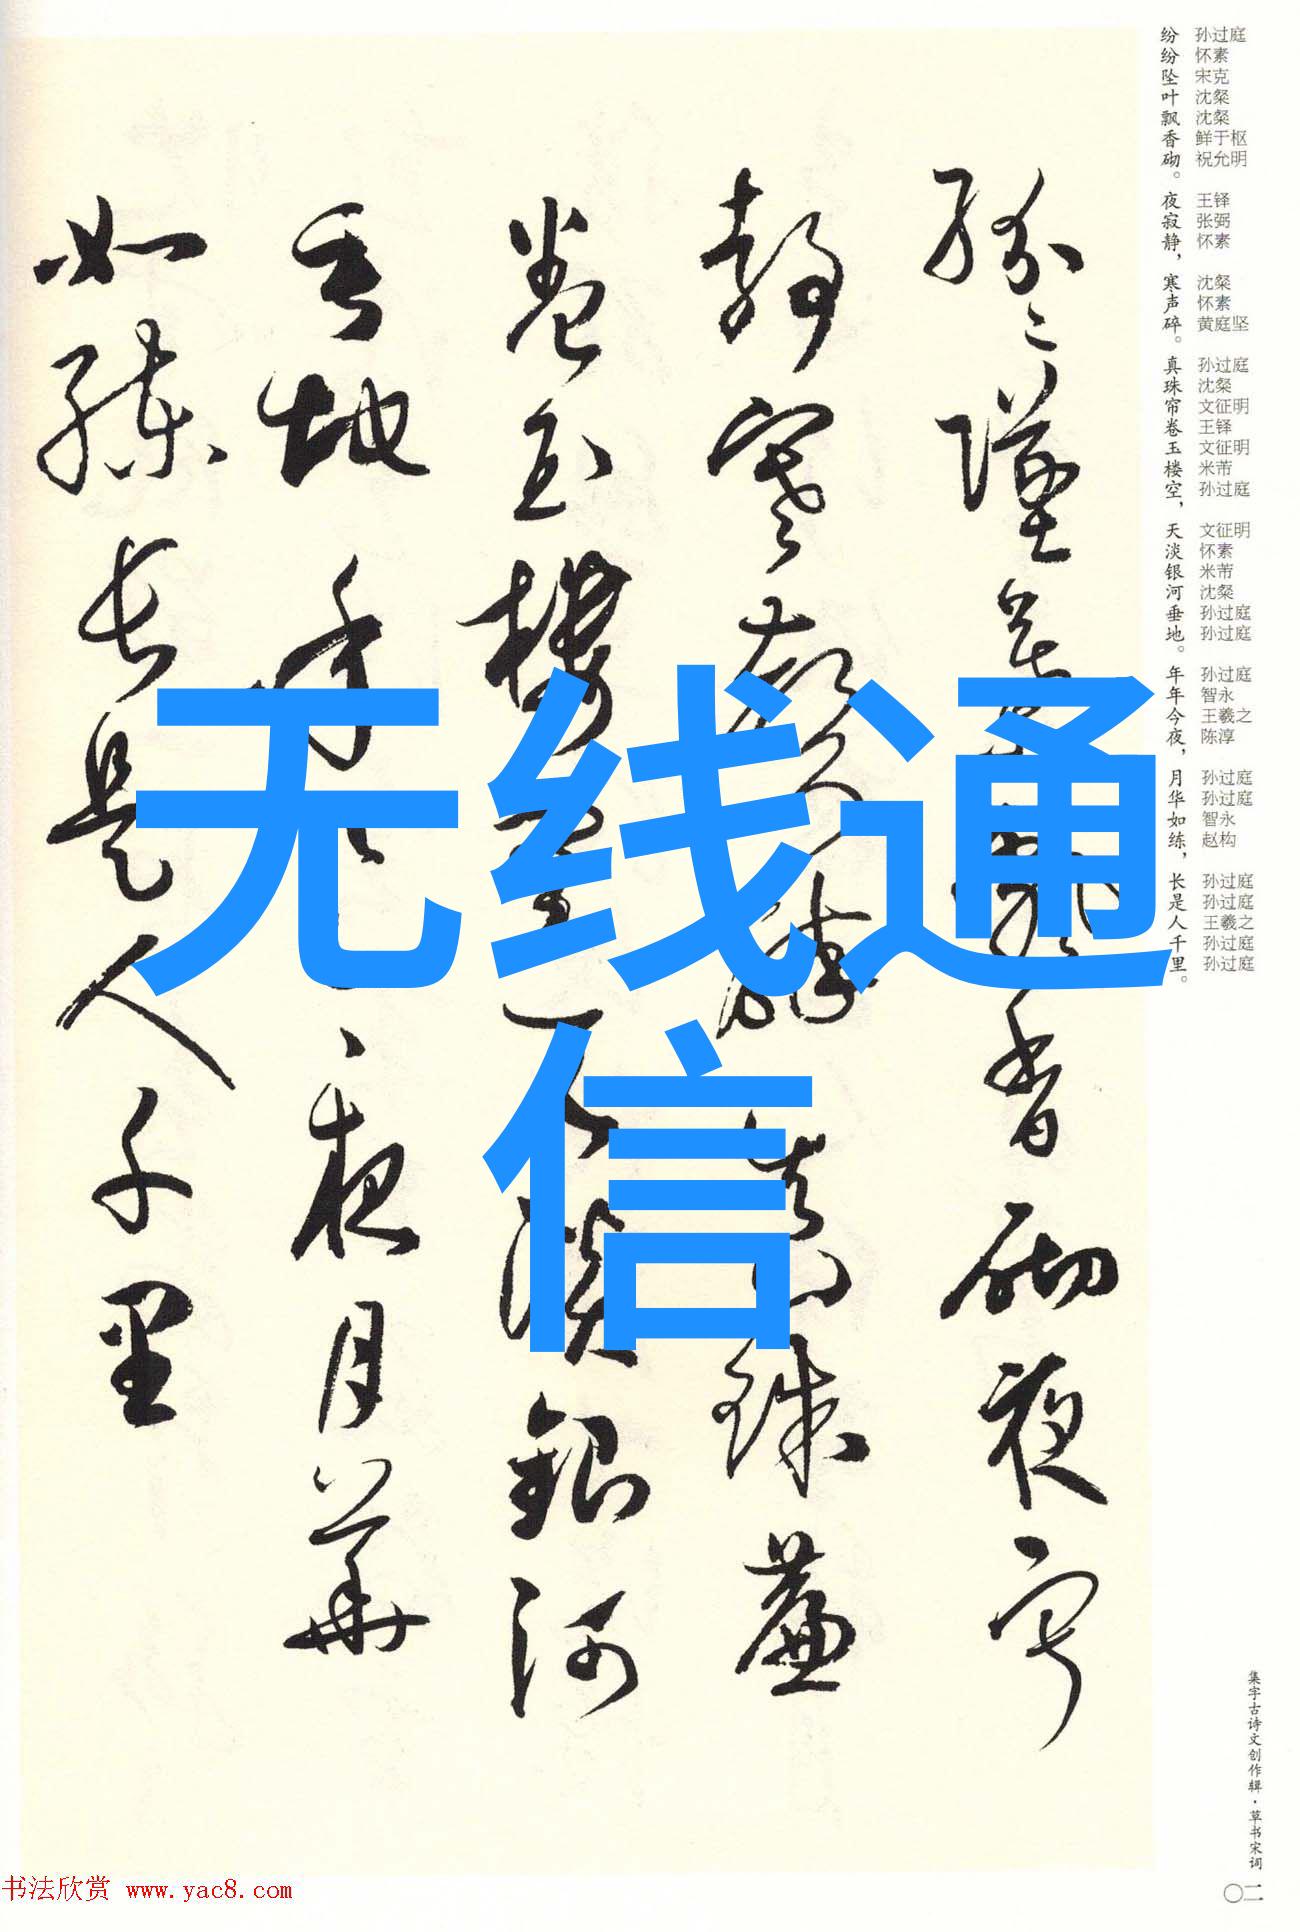 纷纷坠叶飘香砌。夜寂静，寒声碎。真珠帘卷玉楼空，天淡银河垂地。年年今夜，月华如练，长是人千里。
孙过庭
怀素
宋克
沈粲
沈粲
鲜于枢
祝允明
王铎
张弼
怀素
沈粲
怀素
黄庭坚
孙过庭
沈粲
文征明
王铎
文征明
米芾
孙过庭
文征明
怀素
米芾
沈粲
孙过庭
孙过庭
孙过庭
智永
王羲之
陈淳
孙过庭
孙过庭
智永
赵构
孙过庭
孙过庭
王羲之
孙过庭
孙过庭
纷〻坠叶飘香砌夜寂
静寒声碎真珠簾
卷玉楼空天淡銀河
垂地年〻今夜月華
如練长是人千里
无线通
信
集字古诗文创作辑·草书宋词
〇二
书法欣赏 www.yac8.com